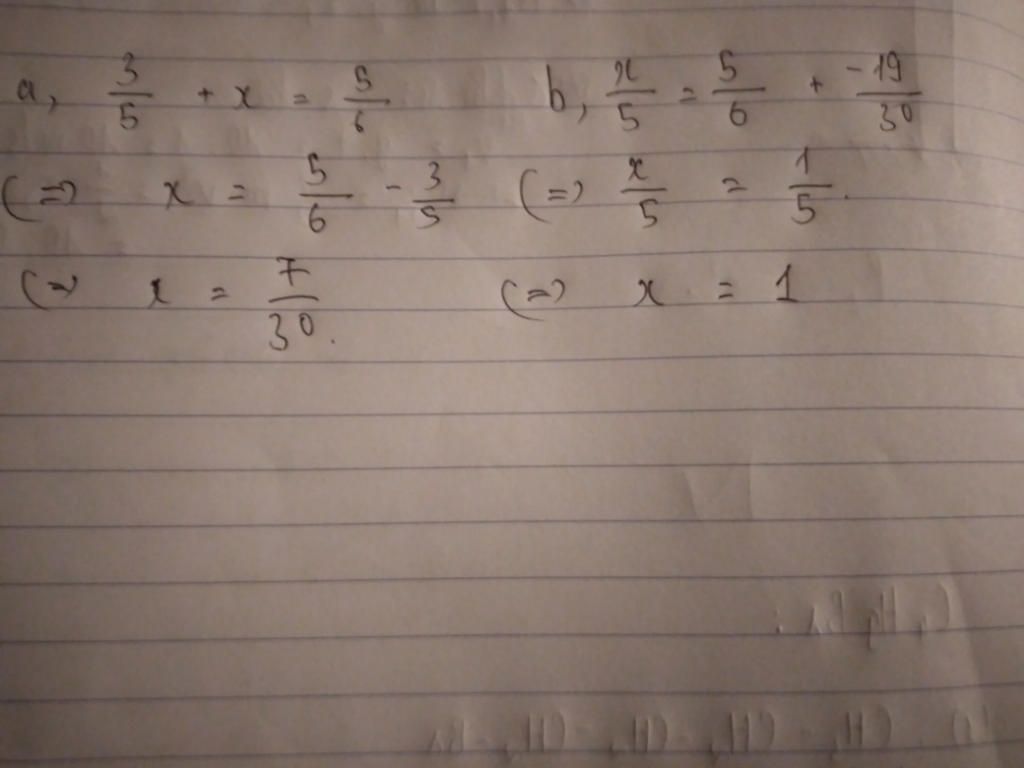 a, 3/5 + x = 5/6
(=) x = 5/6 - 3/5
(=) x = 7/30.
b, x/5 = 5/6 + -19/30
(=) x/5 = 1/5.
(=) x = 1